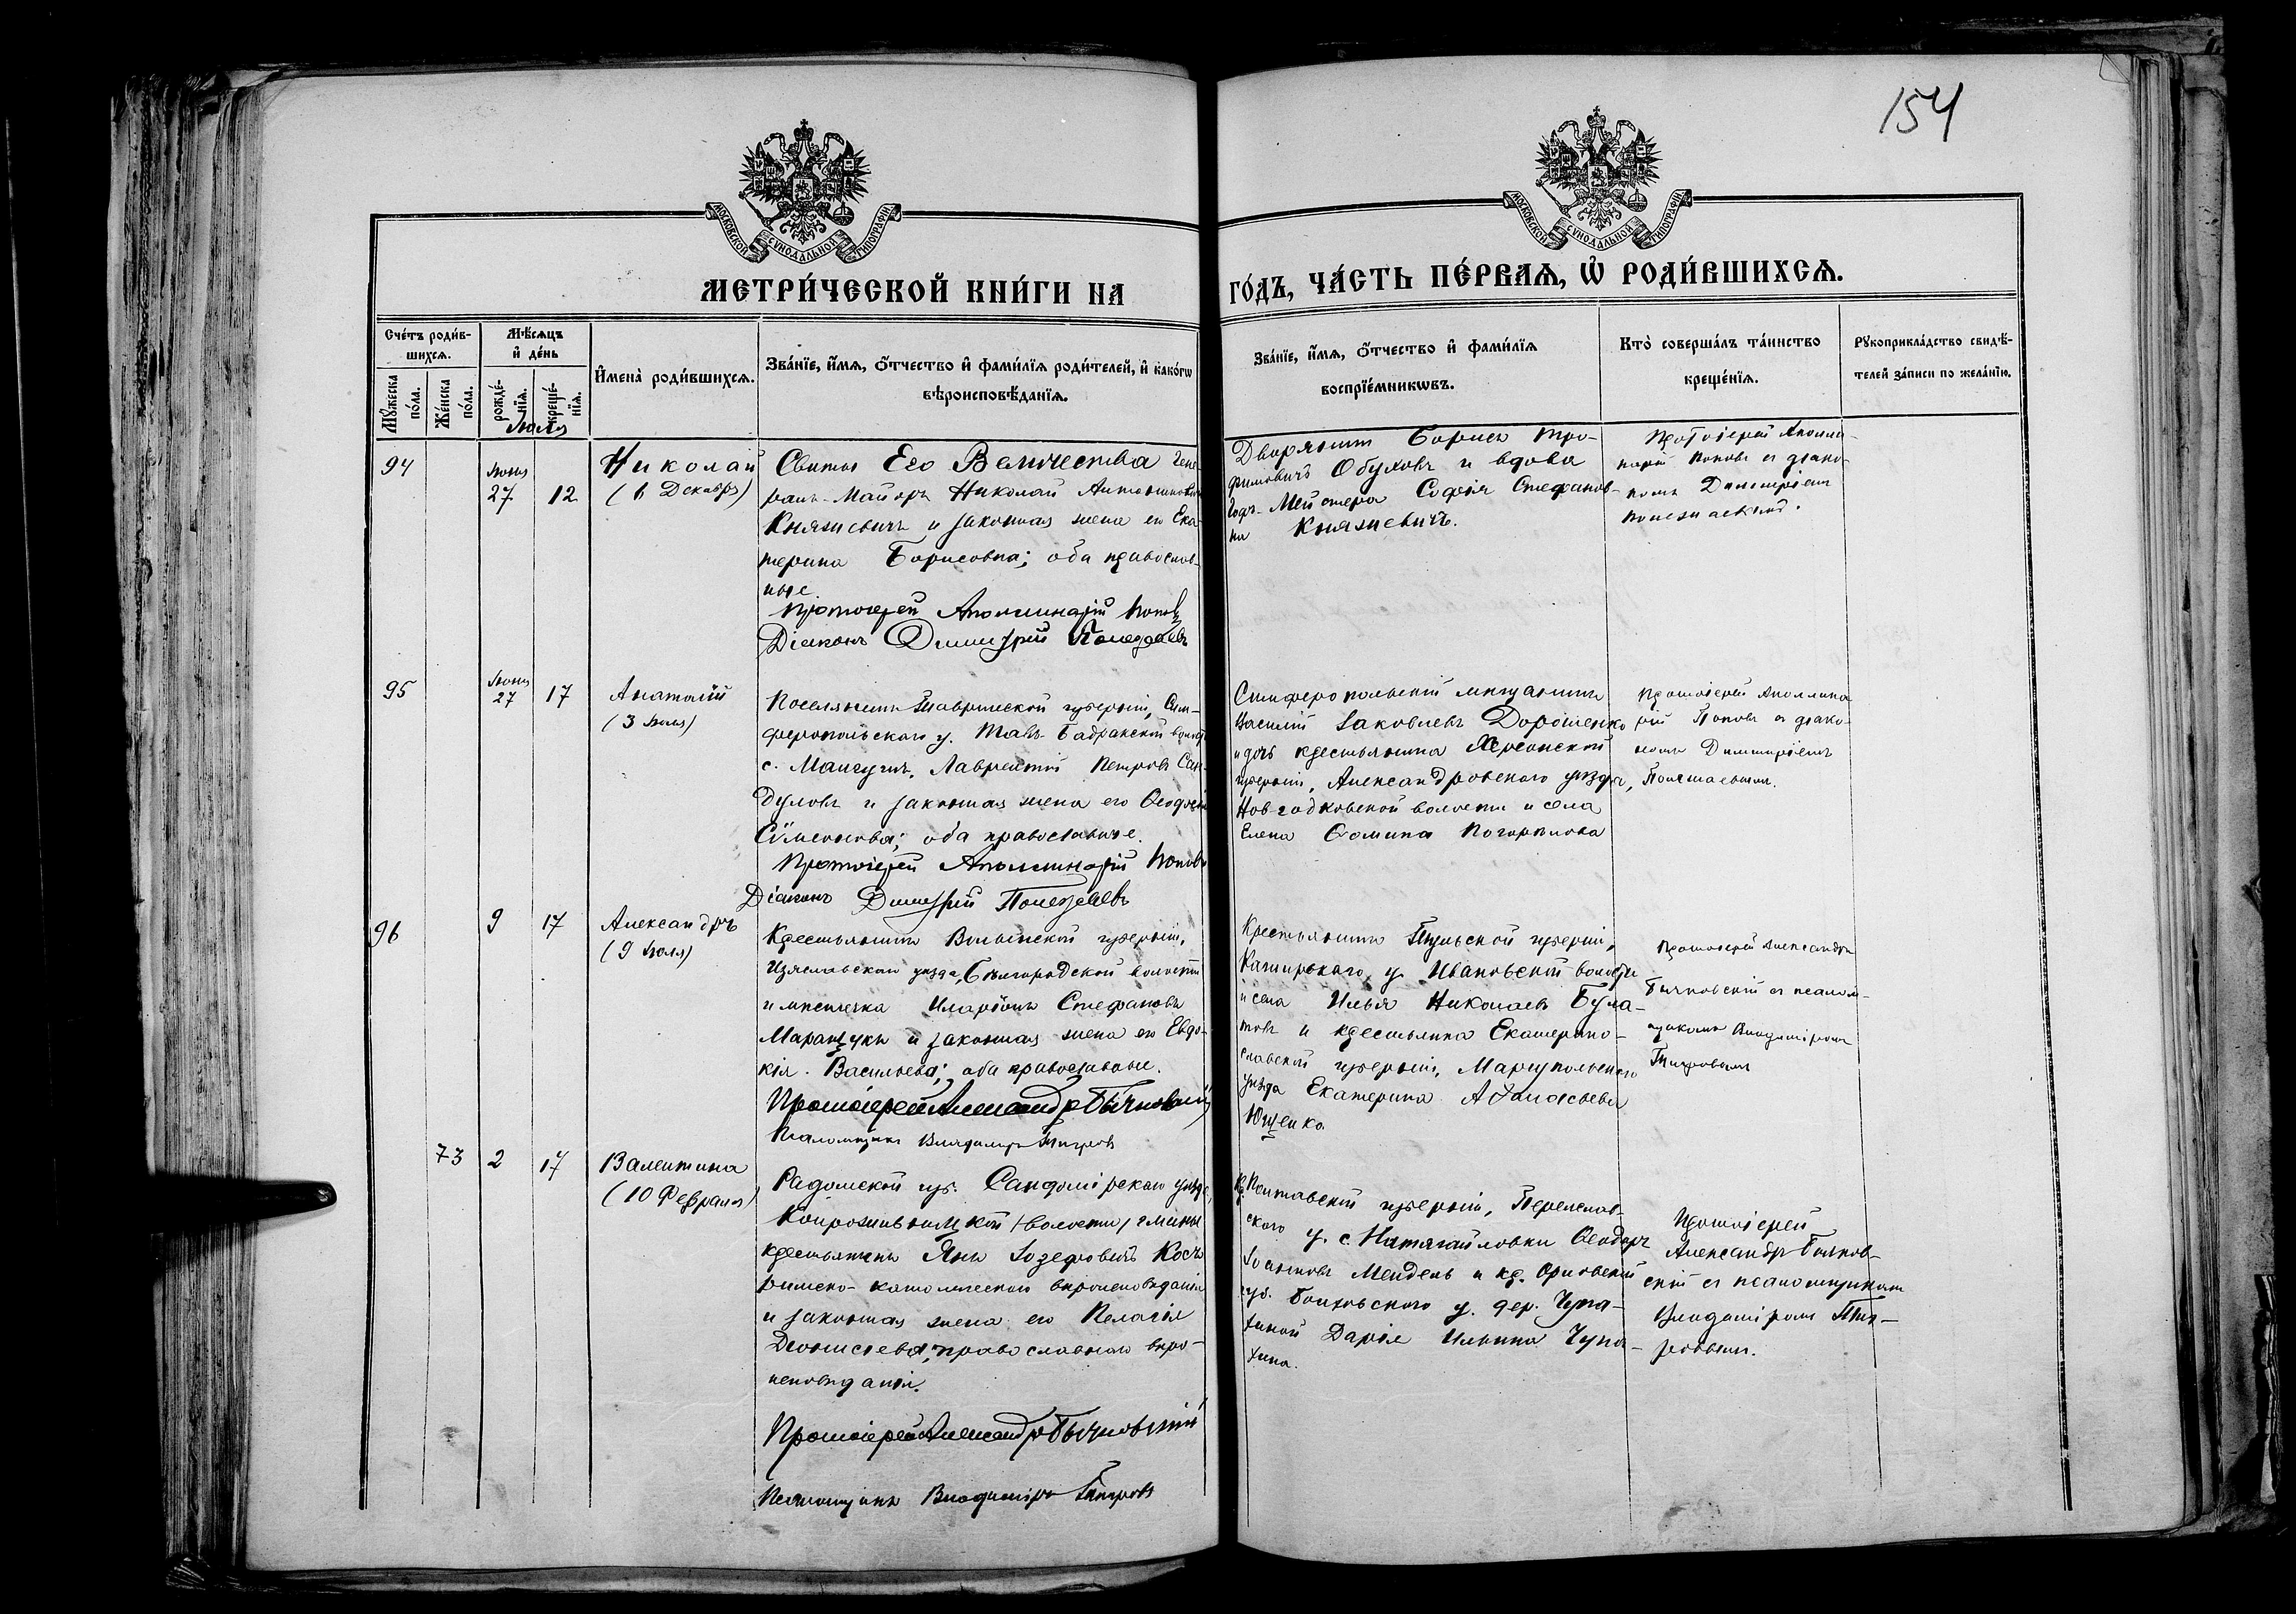 154
МОСКОВСКОЙ СУНОДАЛЬНОЙ ТИПОГРАФІИ
МОСКОВСКОЙ СУНОДАЛЬНОЙ ТИПОГРАФІИ
МЕТРИ́ЧЕСКОЙ КНИ́ГИ НА
ГО́ДЪ, ЧА́СТЬ ПЕ́РВАѦ, Ѡ҆ РОДИ́ВШИХСѦ.
Сче́тъ роди́в-
шихсѧ.
Мѹ́жеска по́ла.
Же́нска по́ла.
Мѣ́сѧцъ
и҆ де́нь
рожде́-нїѧ.
креще́-нїѧ.
И҆мена̀ роди́вшихсѧ.
Зва́нїе, и҆́мѧ, ѻ҆́тчество и҆ фами́лїѧ роди́телей, и҆ како́гѡ
вѣроисповѣ́данїѧ.
Зва́нїе, и҆́мѧ, ѻ҆́тчество и҆ фами́лїѧ
воспрїе́мникѡвъ.
Кто̀ соверша́лъ та́инство
креще́нїѧ.
Рѹкоприкла́дство свидѣ́-
телей за́писи по жела́нїю.
Іюля
94
Іюня
27
12
Николай
(6 Декабря)
Свиты Его Величества Гене-
ралъ-Майоръ Николай Антониновичъ
Княжевичъ и законная жена его Ека-
терина Борисовна; оба православ-
ные.
Протоіерей Аполлинарій Поповъ
Діаконъ Димитрій Полежаевъ
Дворянинъ Борисъ Тро-
фимовичъ Обуховъ и вдова
Гофъ-Мейстера Софія Стефанов-
на Княжевичъ.
Протоіерей Аполли-
нарій Поповъ съ діако-
номъ Димитріемъ
95
Іюня
27
17
Анатолій
(3 Іюля)
Поселянинъ Таврической губерніи, Сим-
феропольскаго у. Тавъ-Бадракской волости
с. Мангушъ, Лаврентій Петровъ Сан-
дуловъ и законная жена его Ѳеодосія
Сѵмеонова; оба православные.
Протоіерей Аполлинарій Поповъ
Діаконъ Димитрій Полежаевъ
Симферопольскій мѣщанинъ
Василій Іаковлевъ Дорошенко
и дочь крестьянина Херсонской
губерніи, Александровского уѣзда,
Новгодковской волости и села
Елена Ѳомина Погорѣлова
Протоіерей Аполлина-
рій Поповъ съ діако-
номъ Димитріемъ
Полежаевымъ.
96
9
17
Александръ
(9 Іюля)
Крестьянинъ Волынской губерніи,
Изяславскаго уѣзда, Бѣлгородской волости
и мѣстечка Иларіонъ Стефановъ
Маранчукъ и законная жена его Евдо-
кія Васильева; оба православные.
Протоіерей Александръ Бычковскій
Псаломщикъ Владиміръ Тигровъ
Крестьянинъ Тульской губерніи,
Каширскаго у. Ивановской волости
и села Илья Николаевъ Була-
товъ и крестьянка Екатерино-
славской губерніи, Маріупольскаго
уѣзда Екатерина Аѳанасьева
Ющенко.
Протоіерей Александръ
Бычковскій съ псалом-
щикомъ Владиміромъ
Тигровымъ
73
2
17
Валентина
(10 Февраля)
Радомской губ. Сандомірскаго уѣзда,
Копрживницкой /волости/ гмины
крестьянинъ Янъ Іозефовичъ Косъ
римско-католическаго вѣроисповѣданія
и законная жена его Пелагія
Діонисіева; православнаго вѣро-
исповѣданія.
Протоіерей Александръ Бычковскій
Псаломщикъ Владиміръ Тигровъ
Кр. Полтавской губерніи, Переяслав-
скаго у. с. Ѳеодоръ
Іоанновъ Мендель и кр. Орловской
губ. Болховского у. дер. Чупа-
хиной Дарія Ильина Чупа-
хина.
Протоіерей
Александръ Бычков-
скій съ псаломщикомъ
Владиміромъ Тиг-
ровымъ.